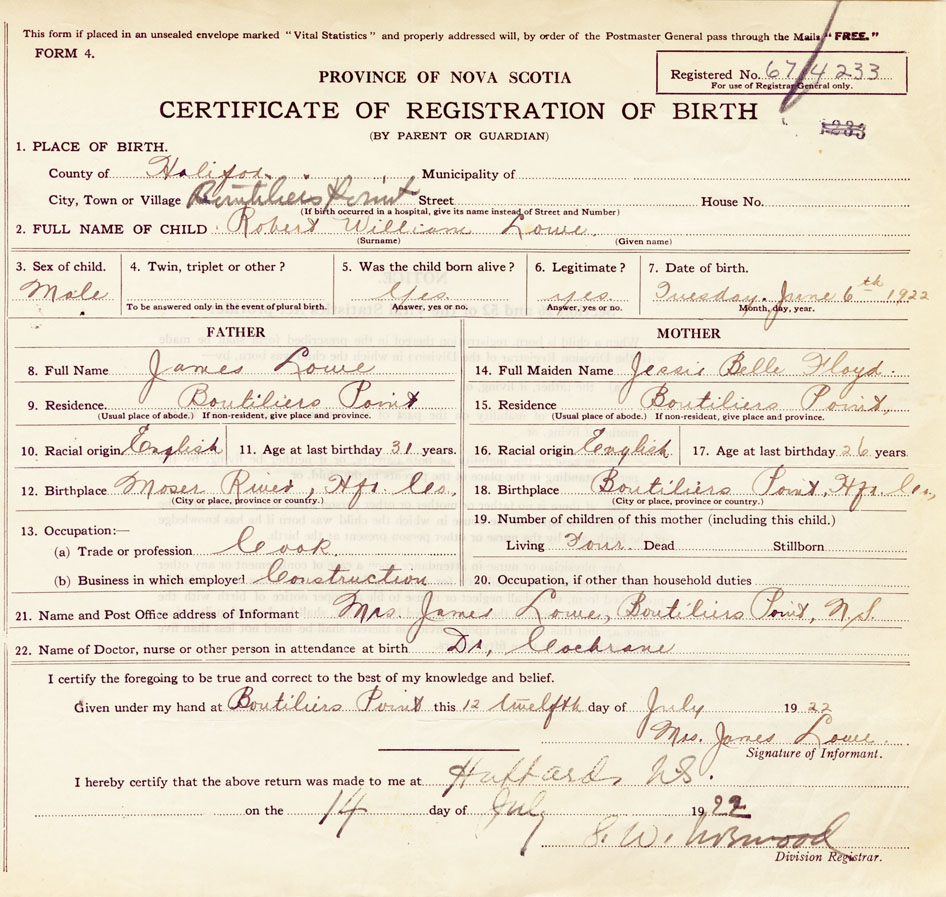 This form if placed in an unsealed envelope marked "Vital Statistics" and properly addressed will, by order of the Postmaster General pass through the Mails "FREE."
FORM 4.
Registered No. 67/4233
For use of Registrar General only.
PROVINCE OF NOVA SCOTIA
CERTIFICATE OF REGISTRATION OF BIRTH
(BY PARENT OR GUARDIAN)
1. PLACE OF BIRTH.
County of Halifax. Municipality of
City, Town or Village Boutiliers Point Street House No.
(If birth occurred in a hospital, give its name instead of Street and Number)
2. FULL NAME OF CHILD Robert William Lowe.
(Surname) (Given name)
3. Sex of child. 4. Twin, triplet or other? 5. Was the child born alive? 6. Legitimate? 7. Date of birth.
Male Yes. yes. Tuesday. June 6th 1922
To be answered only in the event of plural birth. Answer, yes or no. Answer, yes or no. Month, day, year.
FATHER MOTHER
8. Full Name James Lowe 14. Full Maiden Name Jessie Belle Floyd.
9. Residence. Boutiliers Point 15. Residence Boutiliers Point,
(Usual place of abode.) If non-resident, give place and province. (Usual place of abode.) If non-resident, give place and province.
10. Racial origin English 11. Age at last birthday 31 years. 16. Racial origin English. 17. Age at last birthday 26 years.
12. Birthplace Moser River, Hfx. Co. 18. Birthplace Boutiliers Point, Hfx. Co.,
(City or place, province or country.) (City or place, province or country.)
19. Number of children of this mother (including this child.)
13. Occupation:—
(a) Trade or profession Cook. Living Four. Dead Stillborn
(b) Business in which employed Construction 20. Occupation, if other than household duties
21. Name and Post Office address of Informant Mrs. James Lowe, Boutiliers Point, N.S.
22. Name of Doctor, nurse or other person in attendance at birth Dr, Cochrane
I certify the foregoing to be true and correct to the best of my knowledge and belief.
Given under my hand at Boutiliers Point this 12 twelfth day of July 1922
Mrs. James Lowe.
Signature of Informant.
I hereby certify that the above return was made to me at Hubbards NS.
on the 14 day of July 1922
S. W.
Division Registrar.